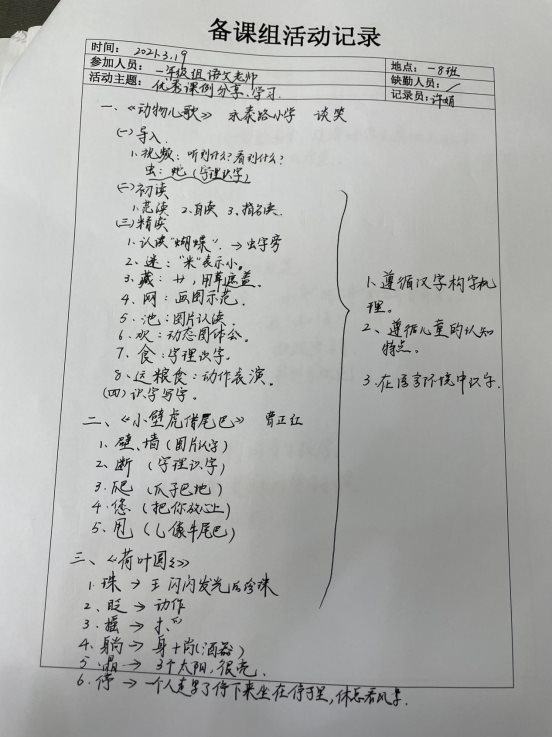 备课组活动记录
时间： 2021.3.19
地点：一8班
参加人员： 一年级组语文老师
缺勤人员：/
活动主题： 优秀课例分享、学习
记录员：许娟
一、《动物儿歌》 永泰路小学 谈笑
(一)导入
1、视频：听到什么？看到什么？
虫：蛇（字理识字）
(二)初读
1、范读 2、自读 3、指名读.
(三)精读
1、认读"蝴蝶". → 虫字旁
2、迷："米"表示小。
3、藏：艹，用草遮盖。
4、网：画图示范.
5、池：图片认读
6、欢：动态图体会。
7、食：字理识字。
8、运粮食：动作表演。
(四)识字写字。
二、《小壁虎借尾巴》 曹正红
1、壁、墙（图片识字）
2、断（字理识字）
3、爬（爪子巴地）
4、您（把你放心上）
5、甩（乚像牛尾巴）
三、《荷叶圆圆》
1、珠 → 王 闪闪发光的珍珠
2、眨 → 动作
3、摇 → 扌
4、躺 → 身+尚
5、晶 → 3个太阳，很亮.
6、停 → 一个人走累了停下来坐在亭子里，休息看风景.
1、遵循汉字构字机
理。
2、遵循儿童的认知
特点。
3、在语言环境中识字.